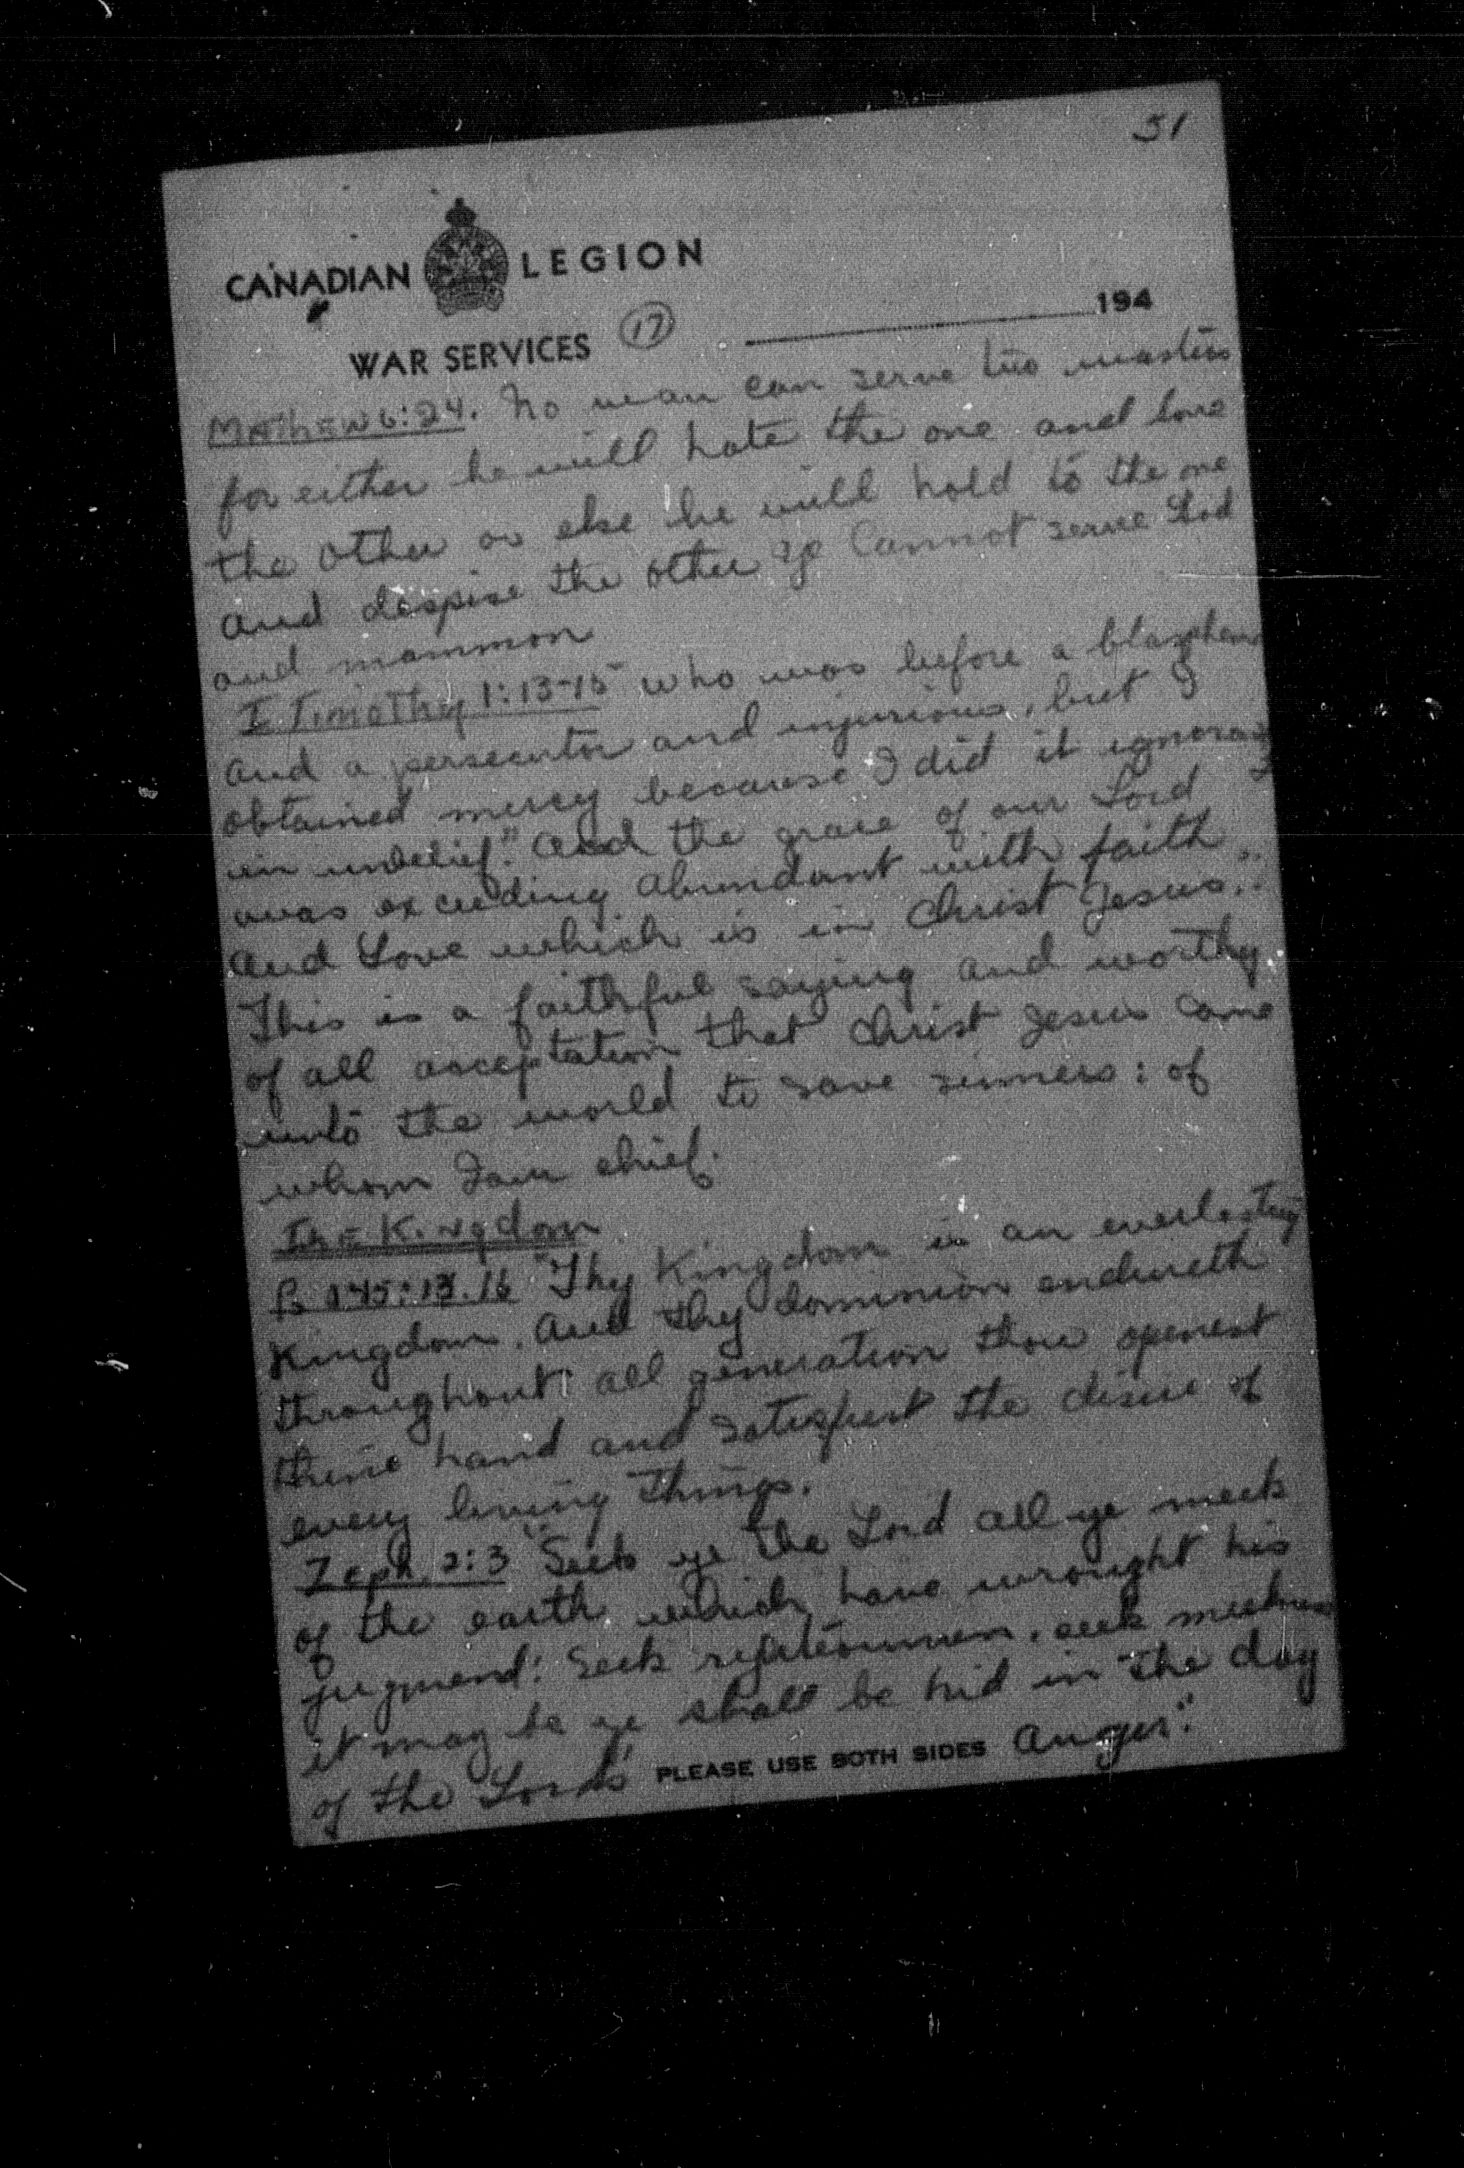 51
CANADIAN LEGION
WAR SERVICES (17) 194
MAThEW 6:24. No man can serve two masters
for either he will hate the one and love
the other or else he will hold to the one
and despise the other ye Cannot serve God
and mammon
I Timothy 1:13-15 who was before a blasphemer
and a persecutor and injurious, but I
obtained mercy because I did it ignorantly
in unbelief." And the grace of our Lord
was exceeding abundant with faith
and Love which is in Christ Jesus..
This is a faithful saying and worthy
of all acceptation that Christ Jesus came
unto the world to save sinners: of
whom I am chief.
ThE Kingdom
Ps 145:13.16 "Thy Kingdom is an everlasting
Kingdom. And thy dominion endureth
throughout all generation thou openest
thine hand and satisfiest the desire of
every living things.
Zeph. 2:3 "Seek ye the Lord all ye meek
of the earth which have wrought his
jugmend: Seek righteousness, seek meekness
it may be ye shall be hid in the day
of the Lords' anger."
PLEASE USE BOTH SIDES